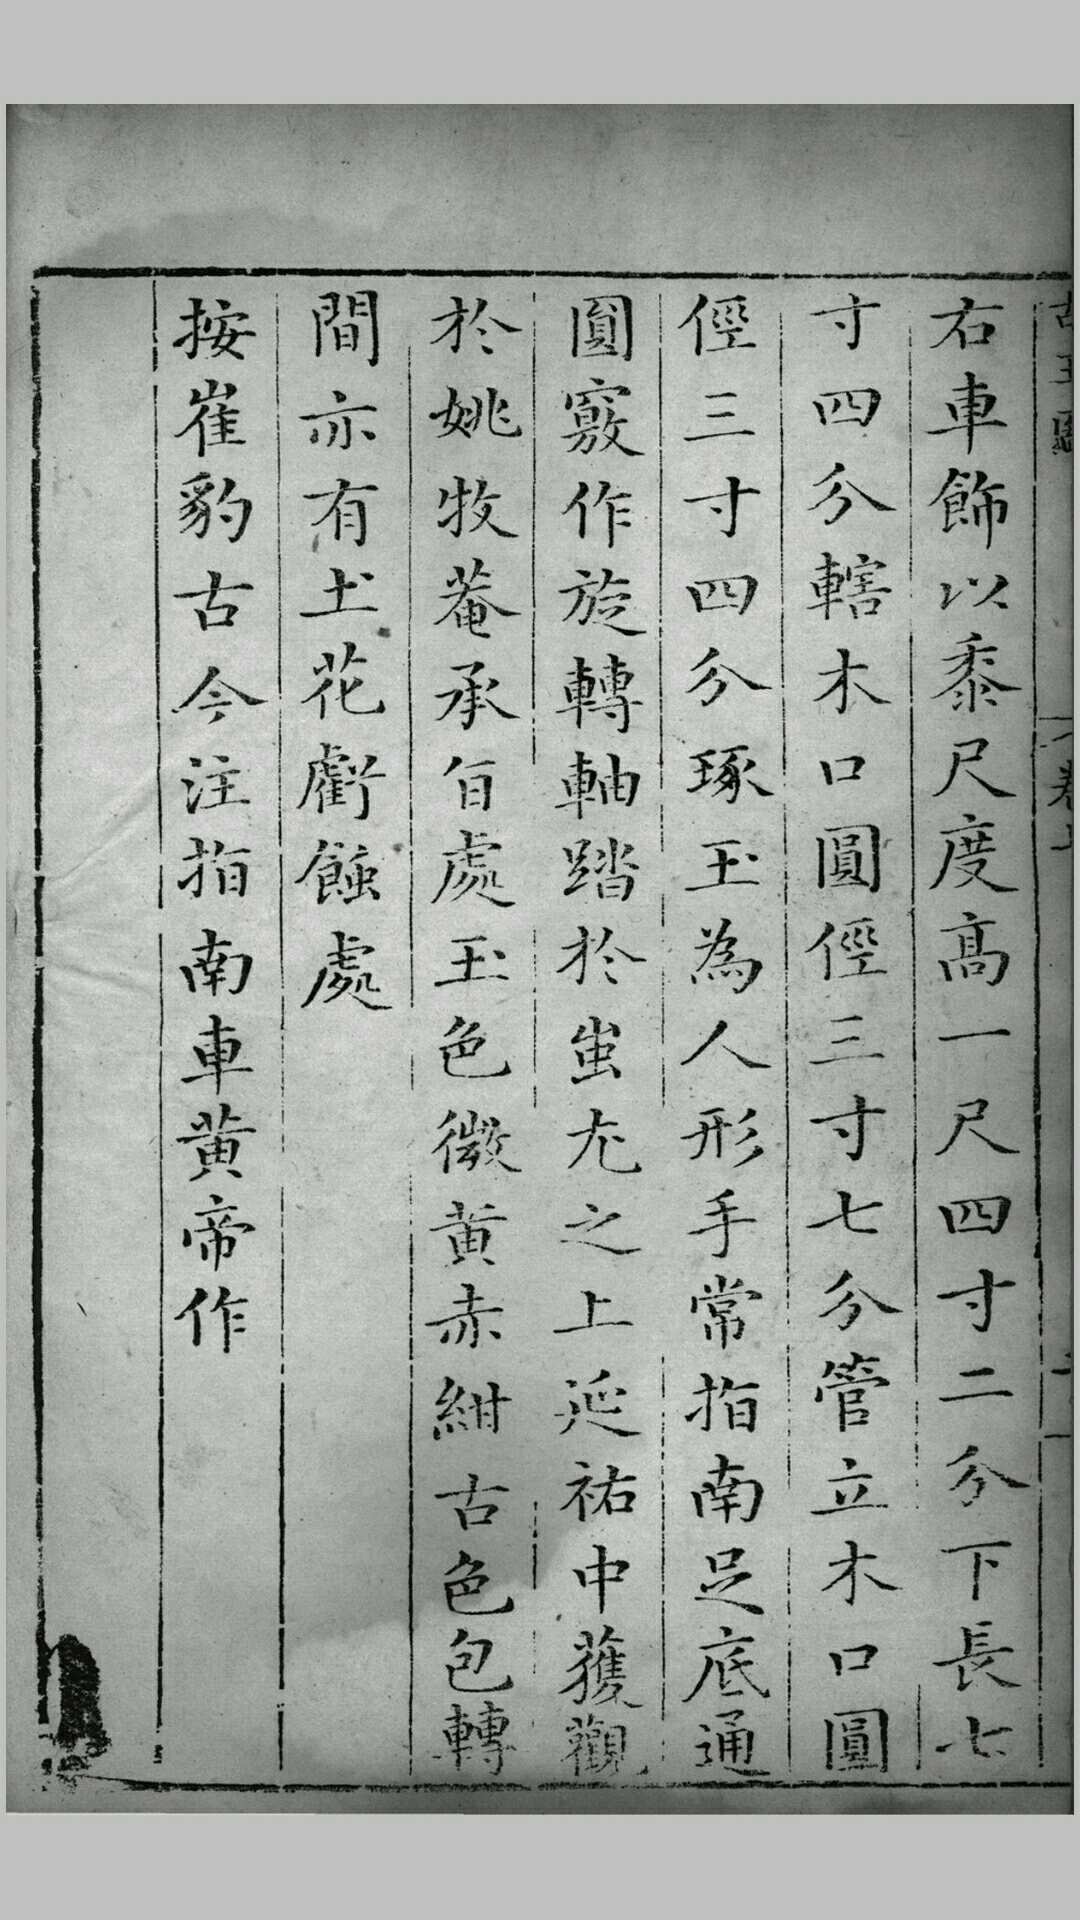 右車飾以黍尺度高一尺四寸二分下長七
寸四分轄木口圓徑三寸七分管立木口圓
徑三寸四分琢玉為人形手常指南足底通
圓竅作旋轉軸踏於蚩尤之上延祐中獲觀
於姚牧菴承㫖處玉色微黃赤紺古色包轉
間亦有土花虧蝕處
按崔豹古今注指南車黃帝作